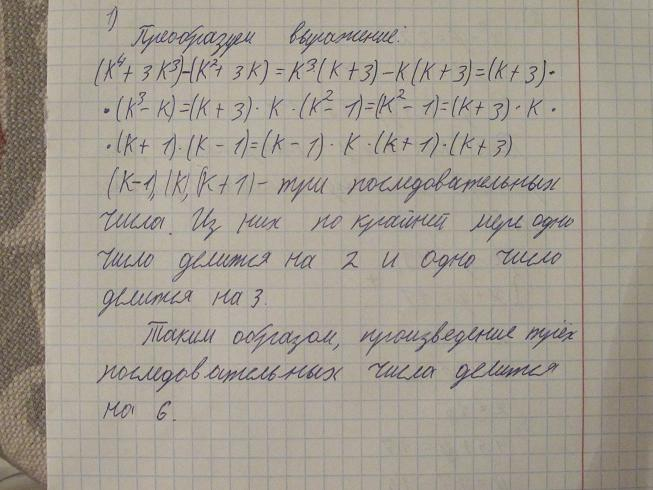 1)
Преобразуем выражение:
(K⁴+3K³)-(K²+3K)=K³(K+3)-K(K+3)=(K+3)·
·(K³-K)=(K+3)·K·(K²-1)=(K²-1)=(K+3)·K·
·(K+1)·(K-1)=(K-1)·K·(K+1)·(K+3)
(K-1), (K), (K+1) - три последовательных
числа. Из них по крайней мере одно
число делится на 2 и одно число
делится на 3.
Таким образом, произведение трёх
последовательных числа делится
на 6.